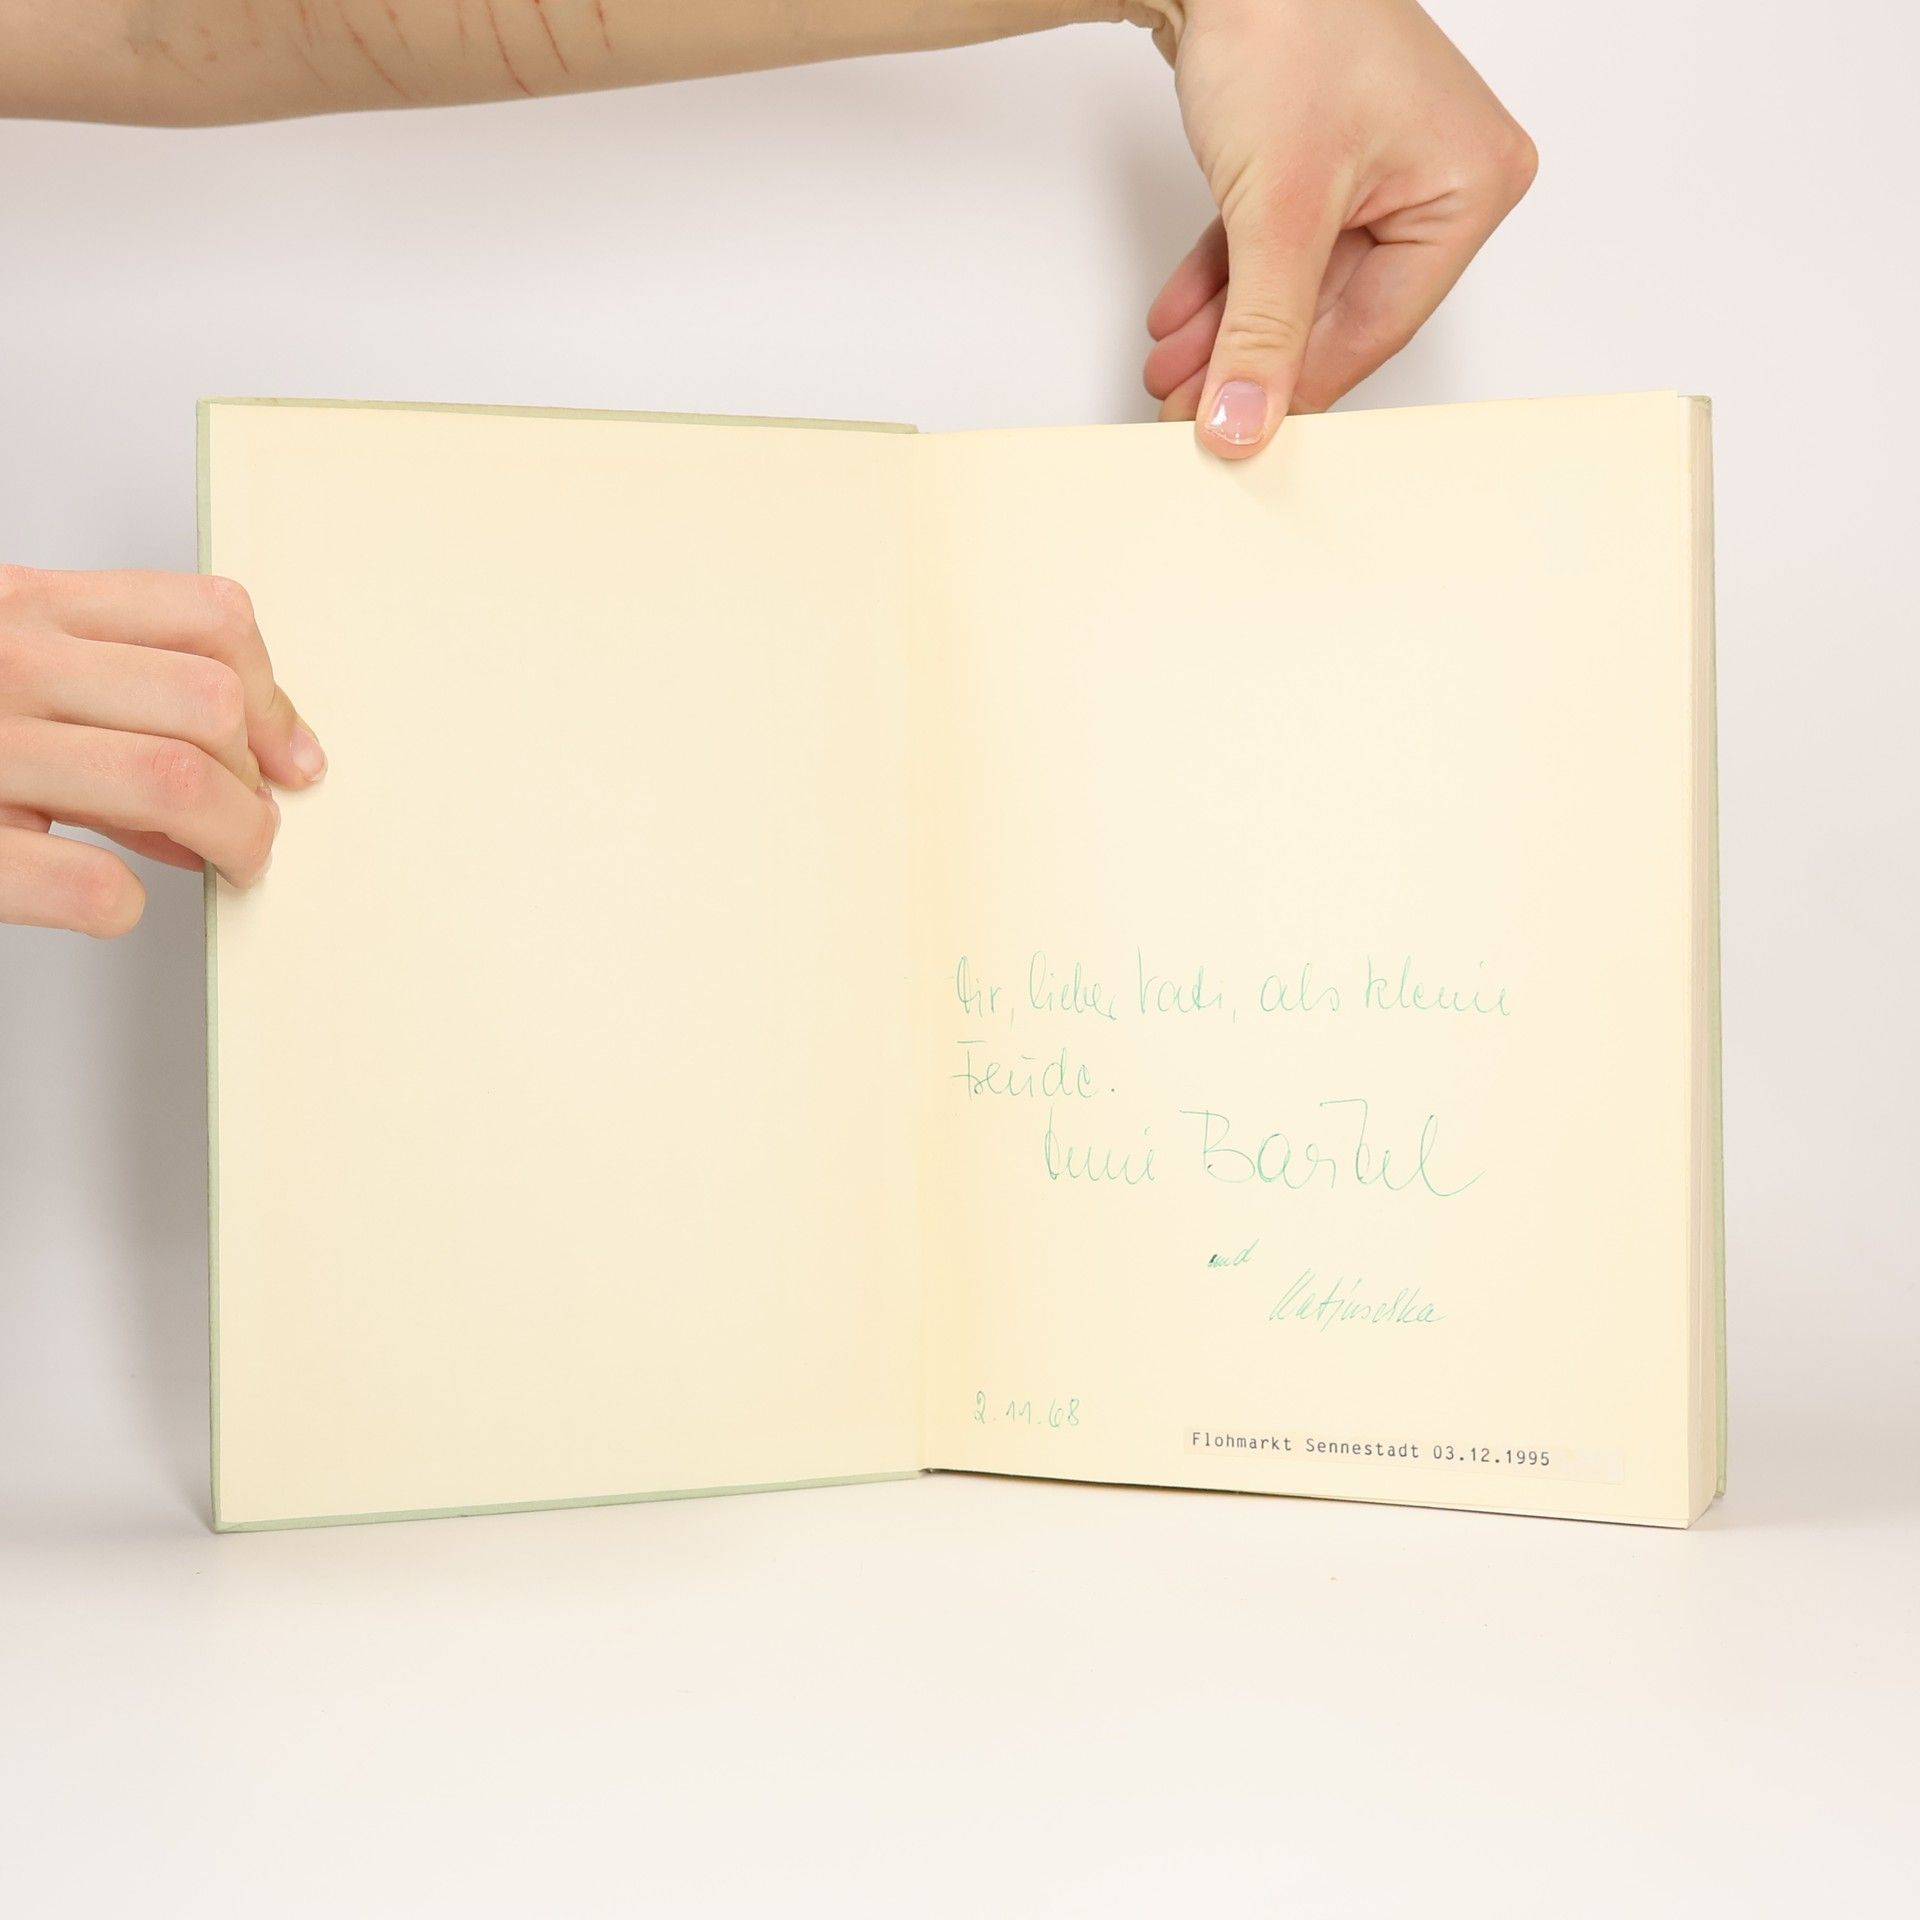 Dir, lieber Vati, als kleine
Freude.
Deine Barbel
und
Katjuschka
2.11.68
Flohmarkt Sennestadt 03.12.1995